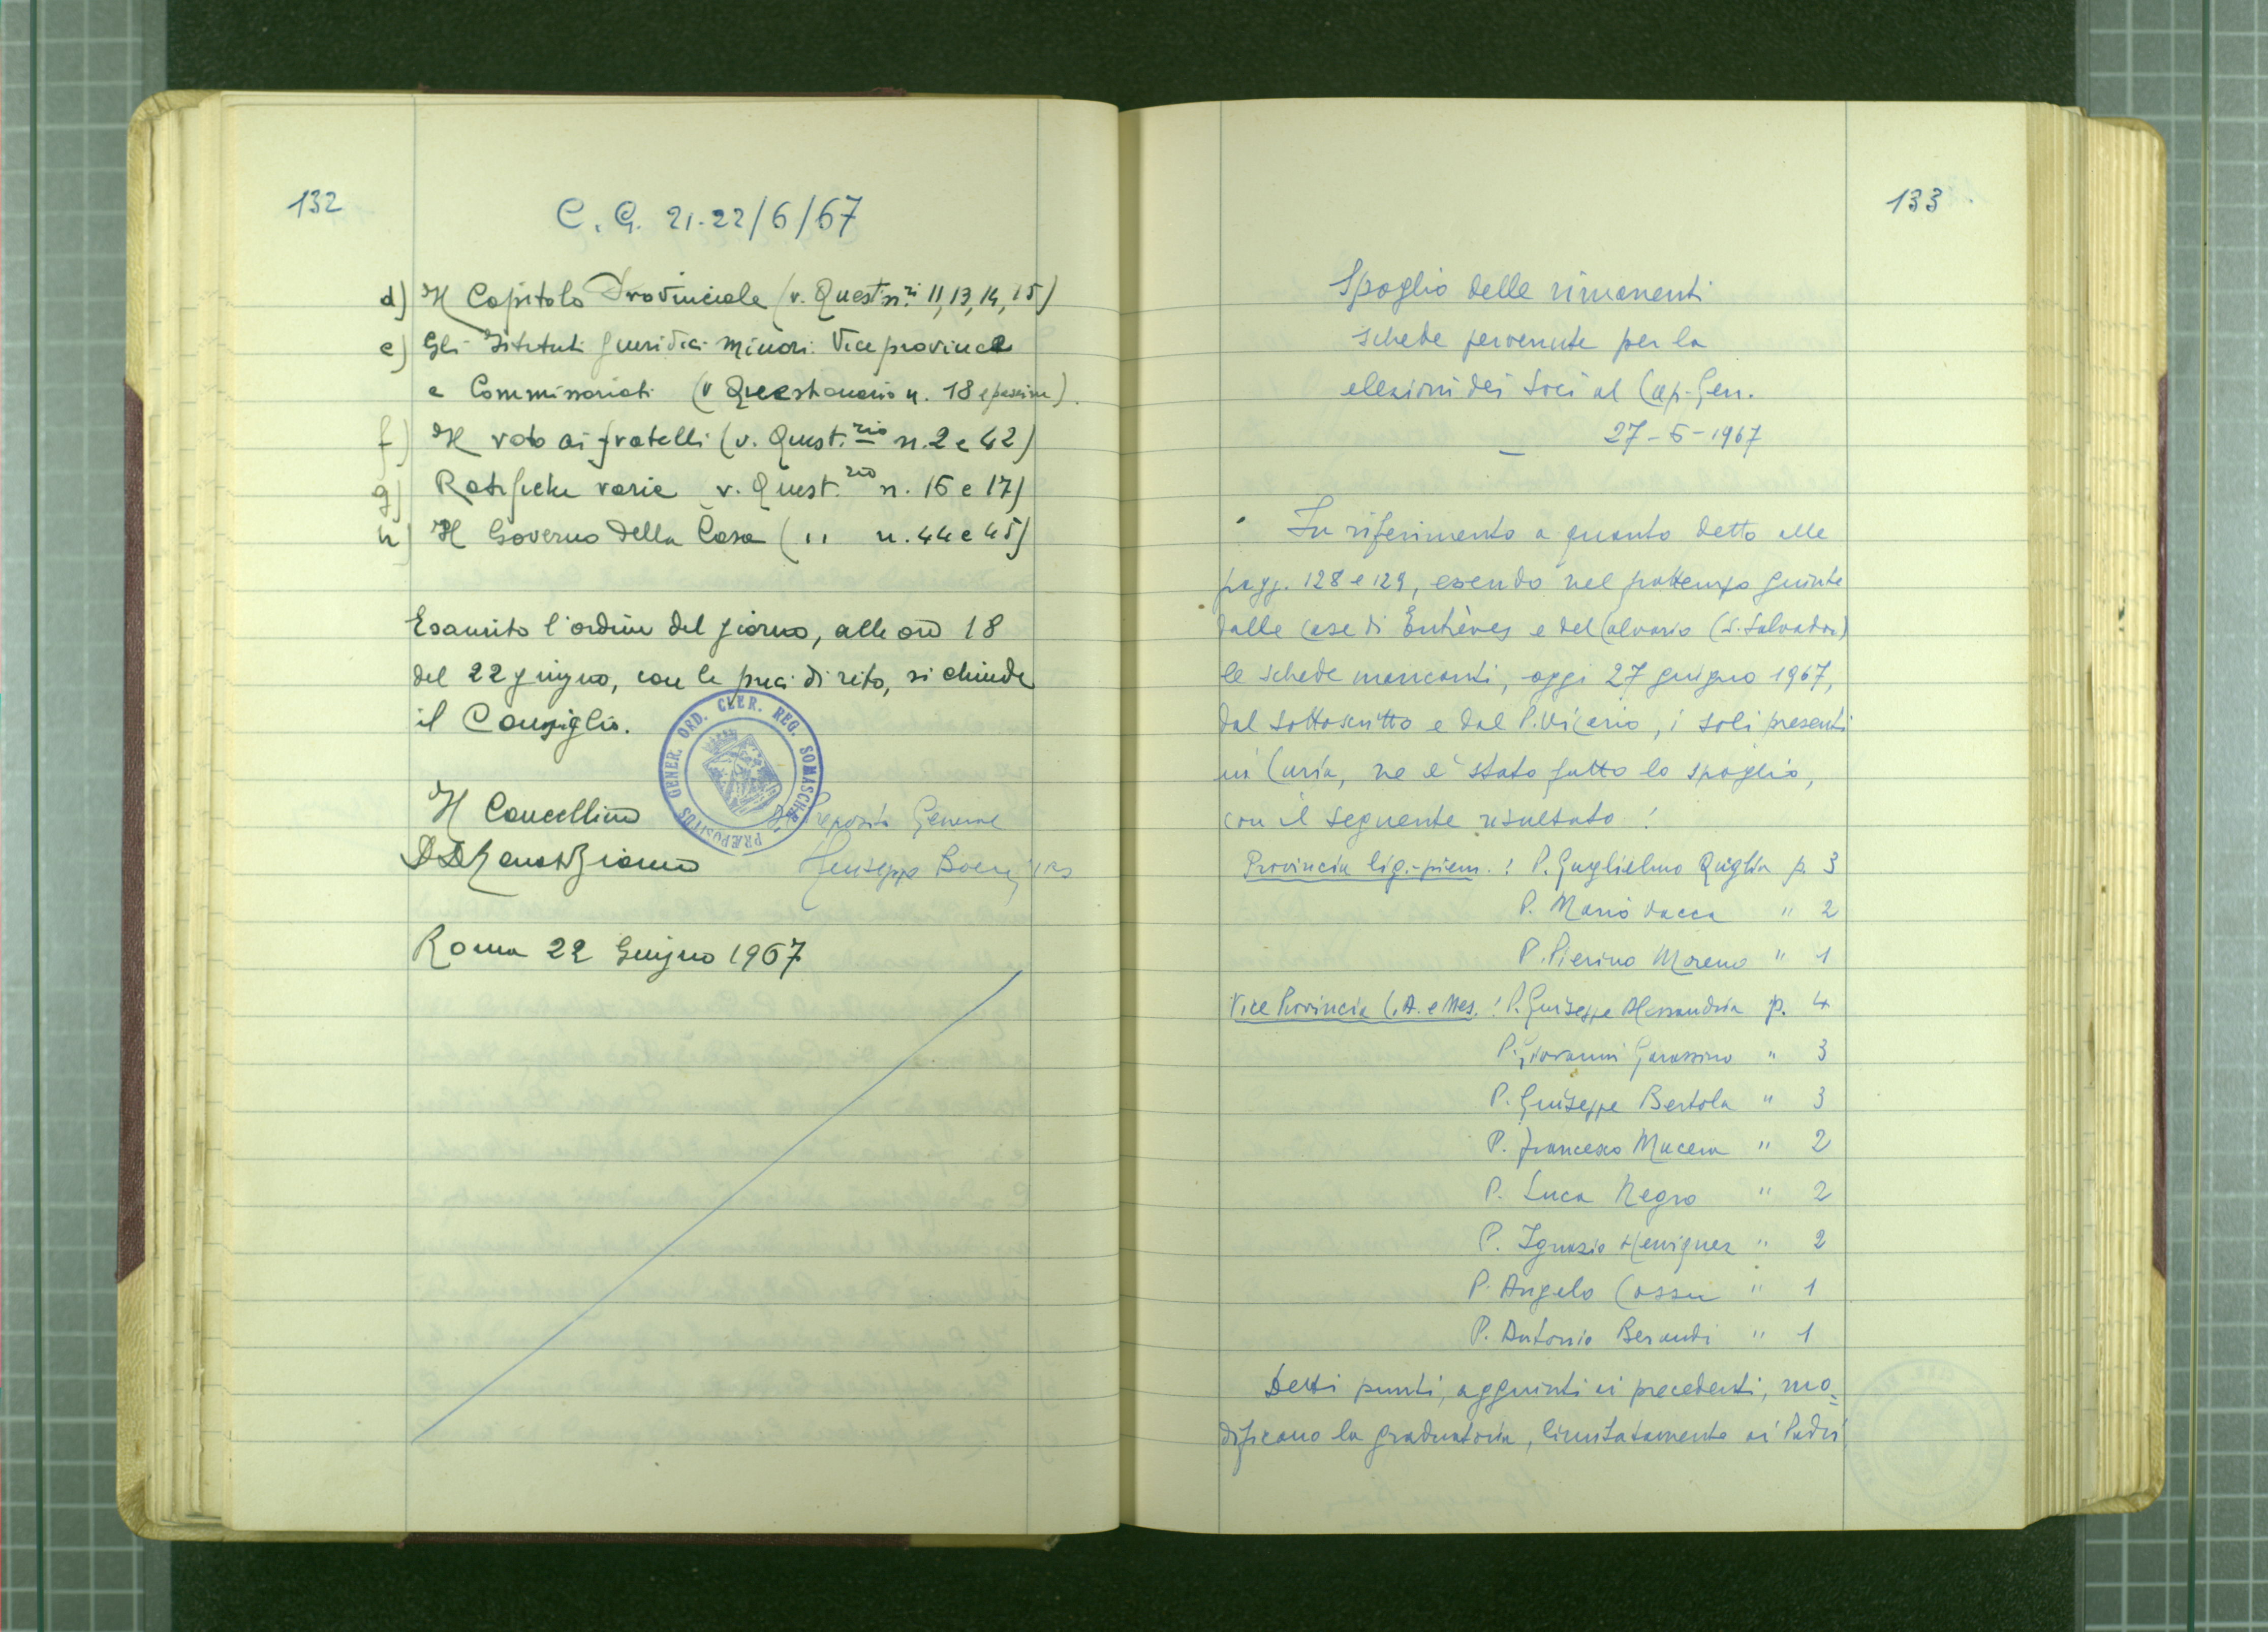 132
C. G. 21-22/6/67
d) Il Capitolo Provinciale (v. Quest. n.ri 11, 13, 14, 15)
e) Gli Istituti giuridici minori: Vice province
e Commissariati (v Questionario n. 18 e passim).
f) Il voto ai fratelli (v. Quest.rio n. 2 e 42)
g) Ratifiche varie v. Quest.rio n. 16 e 17)
h) Il Governo della Casa ( " n. 44 e 45)
Esaurito l'ordine del giorno, alle ore 18
del 22 giugno, con le preci di rito, si chiude
il Consiglio.
PRÆPOSITUS GENER. ORD. CLER. REG. SOMASCHÆ
Il Cancelliere
Il Preposito Generale
Giuseppe Boeris crs
Roma 22 Giugno 1967
133
Spoglio delle rimanenti
schede pervenute per la
elezioni dei Soci al Cap. Gen.
27-6-1967
In riferimento a quanto detto alle
pagg. 128 e 129, essendo nel frattempo giunte
dalle case di Entrèves e del Calvario (S. Salvador)
le schede mancanti, oggi 27 giugno 1967,
dal sottoscritto e dal P. Vicario, i soli presenti
in Curia, ne è stato fatto lo spoglio,
con il seguente risultato:
Provincia lig.-piem.: P. Guglielmo Quiglia p. 3
P. Mario Vacca " 2
P. Pierino Moreno " 1
Vice Provincia C. A. e Mes.: P. Giuseppe Alessandria p. 4
P. Giovanni Garassino " 3
P. Giuseppe Bertola " 3
P. Francesco Macera " 2
P. Luca Negro " 2
P. Ignazio " 2
P. Angelo Cossu " 1
P. Antonio Beraudi " 1
Detti punti, aggiunti ai precedenti, mo=
dificano la graduatoria, limitatamente ai Padri